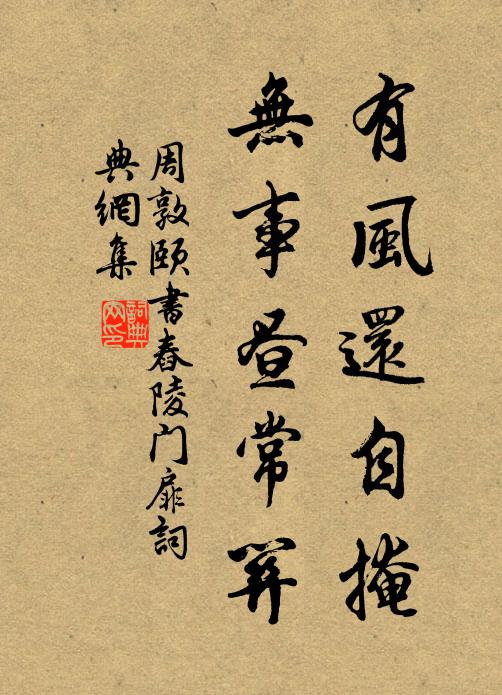 有風還自掩
無事昼常關
周敦頤書舂陵门扉詞
典網集
詞典
网印